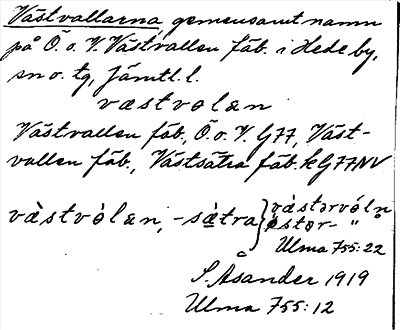 Västvallarna, gemensamt namn
på Ö. o. V. Västvallen fäb. i Hede by,
sn o. tg, Jämtl. l.
væstvolæn
Västvallen fäb., Ö. o. V. G77, Väst-
vallen fäb., Västsätra fäb. k G77NV
væ̀stvòlæn, -sæ̀tra } væ̀stərvóln
östər- "
Ulma 755:22
S. Åsander 1919
Ulma 755:12